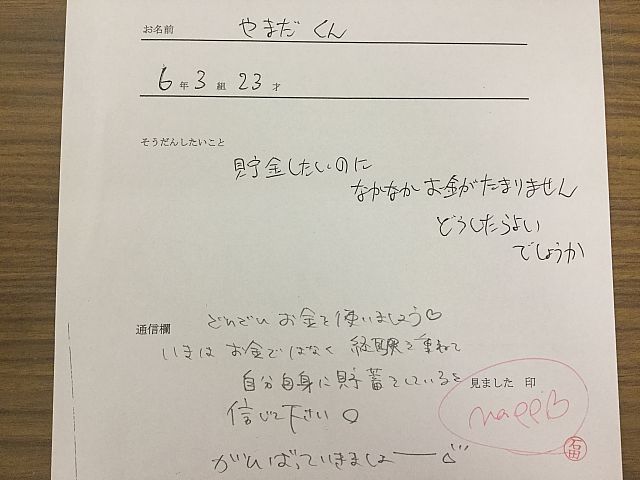 お名前 やまだ くん
6年3組23才
そうだんしたいこと
貯金したいのに
なかなかお金がたまりません
どうしたらよい
でしょうか
通信欄
どんどん お金を使いましょう♡
いまは お金ではなく 経験を重ねて
自分自身に貯蓄をしていると
信じて下さい
がんばっていきましょー
見ました 印
石田